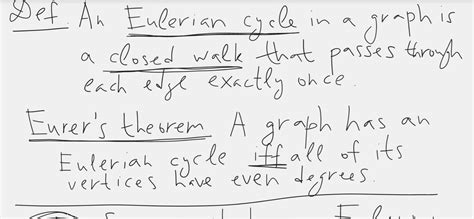 Def. An Eulerian cycle in a graph is
a closed walk that passes through
each edge exactly once.
Eurer's theorem A graph has an
Eulerian cycle iff all of its
vertices have even degrees.